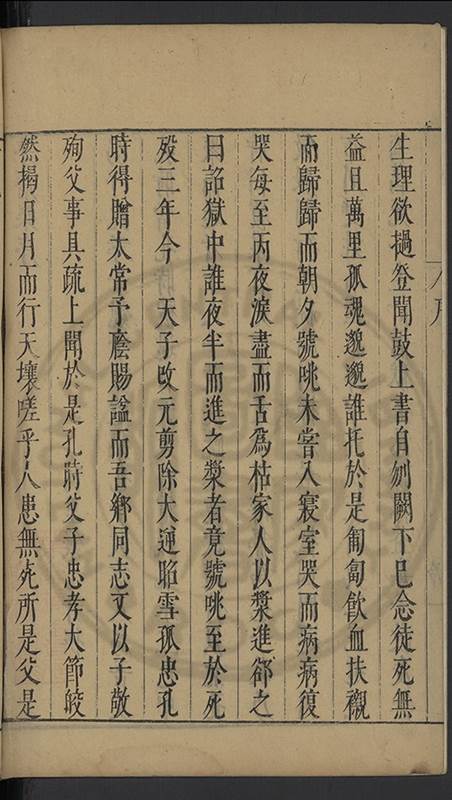 生理欲撾登聞鼓上書自刎闕下已念徒死無
益且萬里孤魂邈邈誰托於是匍匐飲血扶櫬
而歸歸而朝夕號咷未嘗入寢室哭而病病復
哭每至丙夜淚盡而舌為枯家人以漿進郤之
曰詔獄中誰夜半而進之漿者竟號咷至於死
歿三年今　天子改元剪除大逆昭雪孤忠孔
時得贈太常予廕賜諡而吾鄉同志又以子敬
殉父事具疏上聞於是孔時父子忠孝大節皎
然揭日月而行天壤嗟乎人患無死所是父是